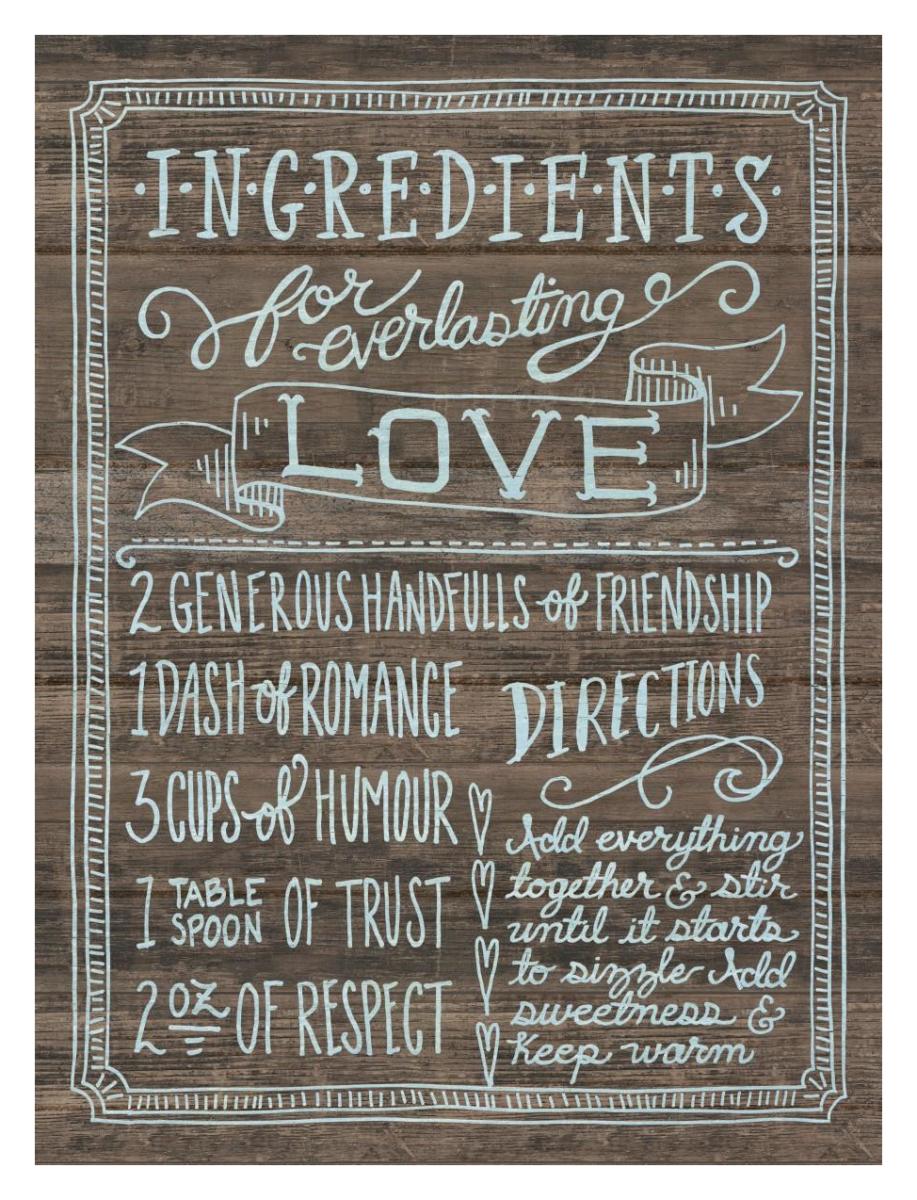 I·N·G·R·E·D·I·E·N·T·S
for everlasting
LOVE
2 GENEROUS HANDFULLS of FRIENDSHIP
1 DASH of ROMANCE
3 CUPS of HUMOUR
1 TABLE SPOON OF TRUST
2 OZ OF RESPECT
DIRECTIONS
Add everything
together & stir
until it starts
to sizzle Add
sweetness &
Keep warm